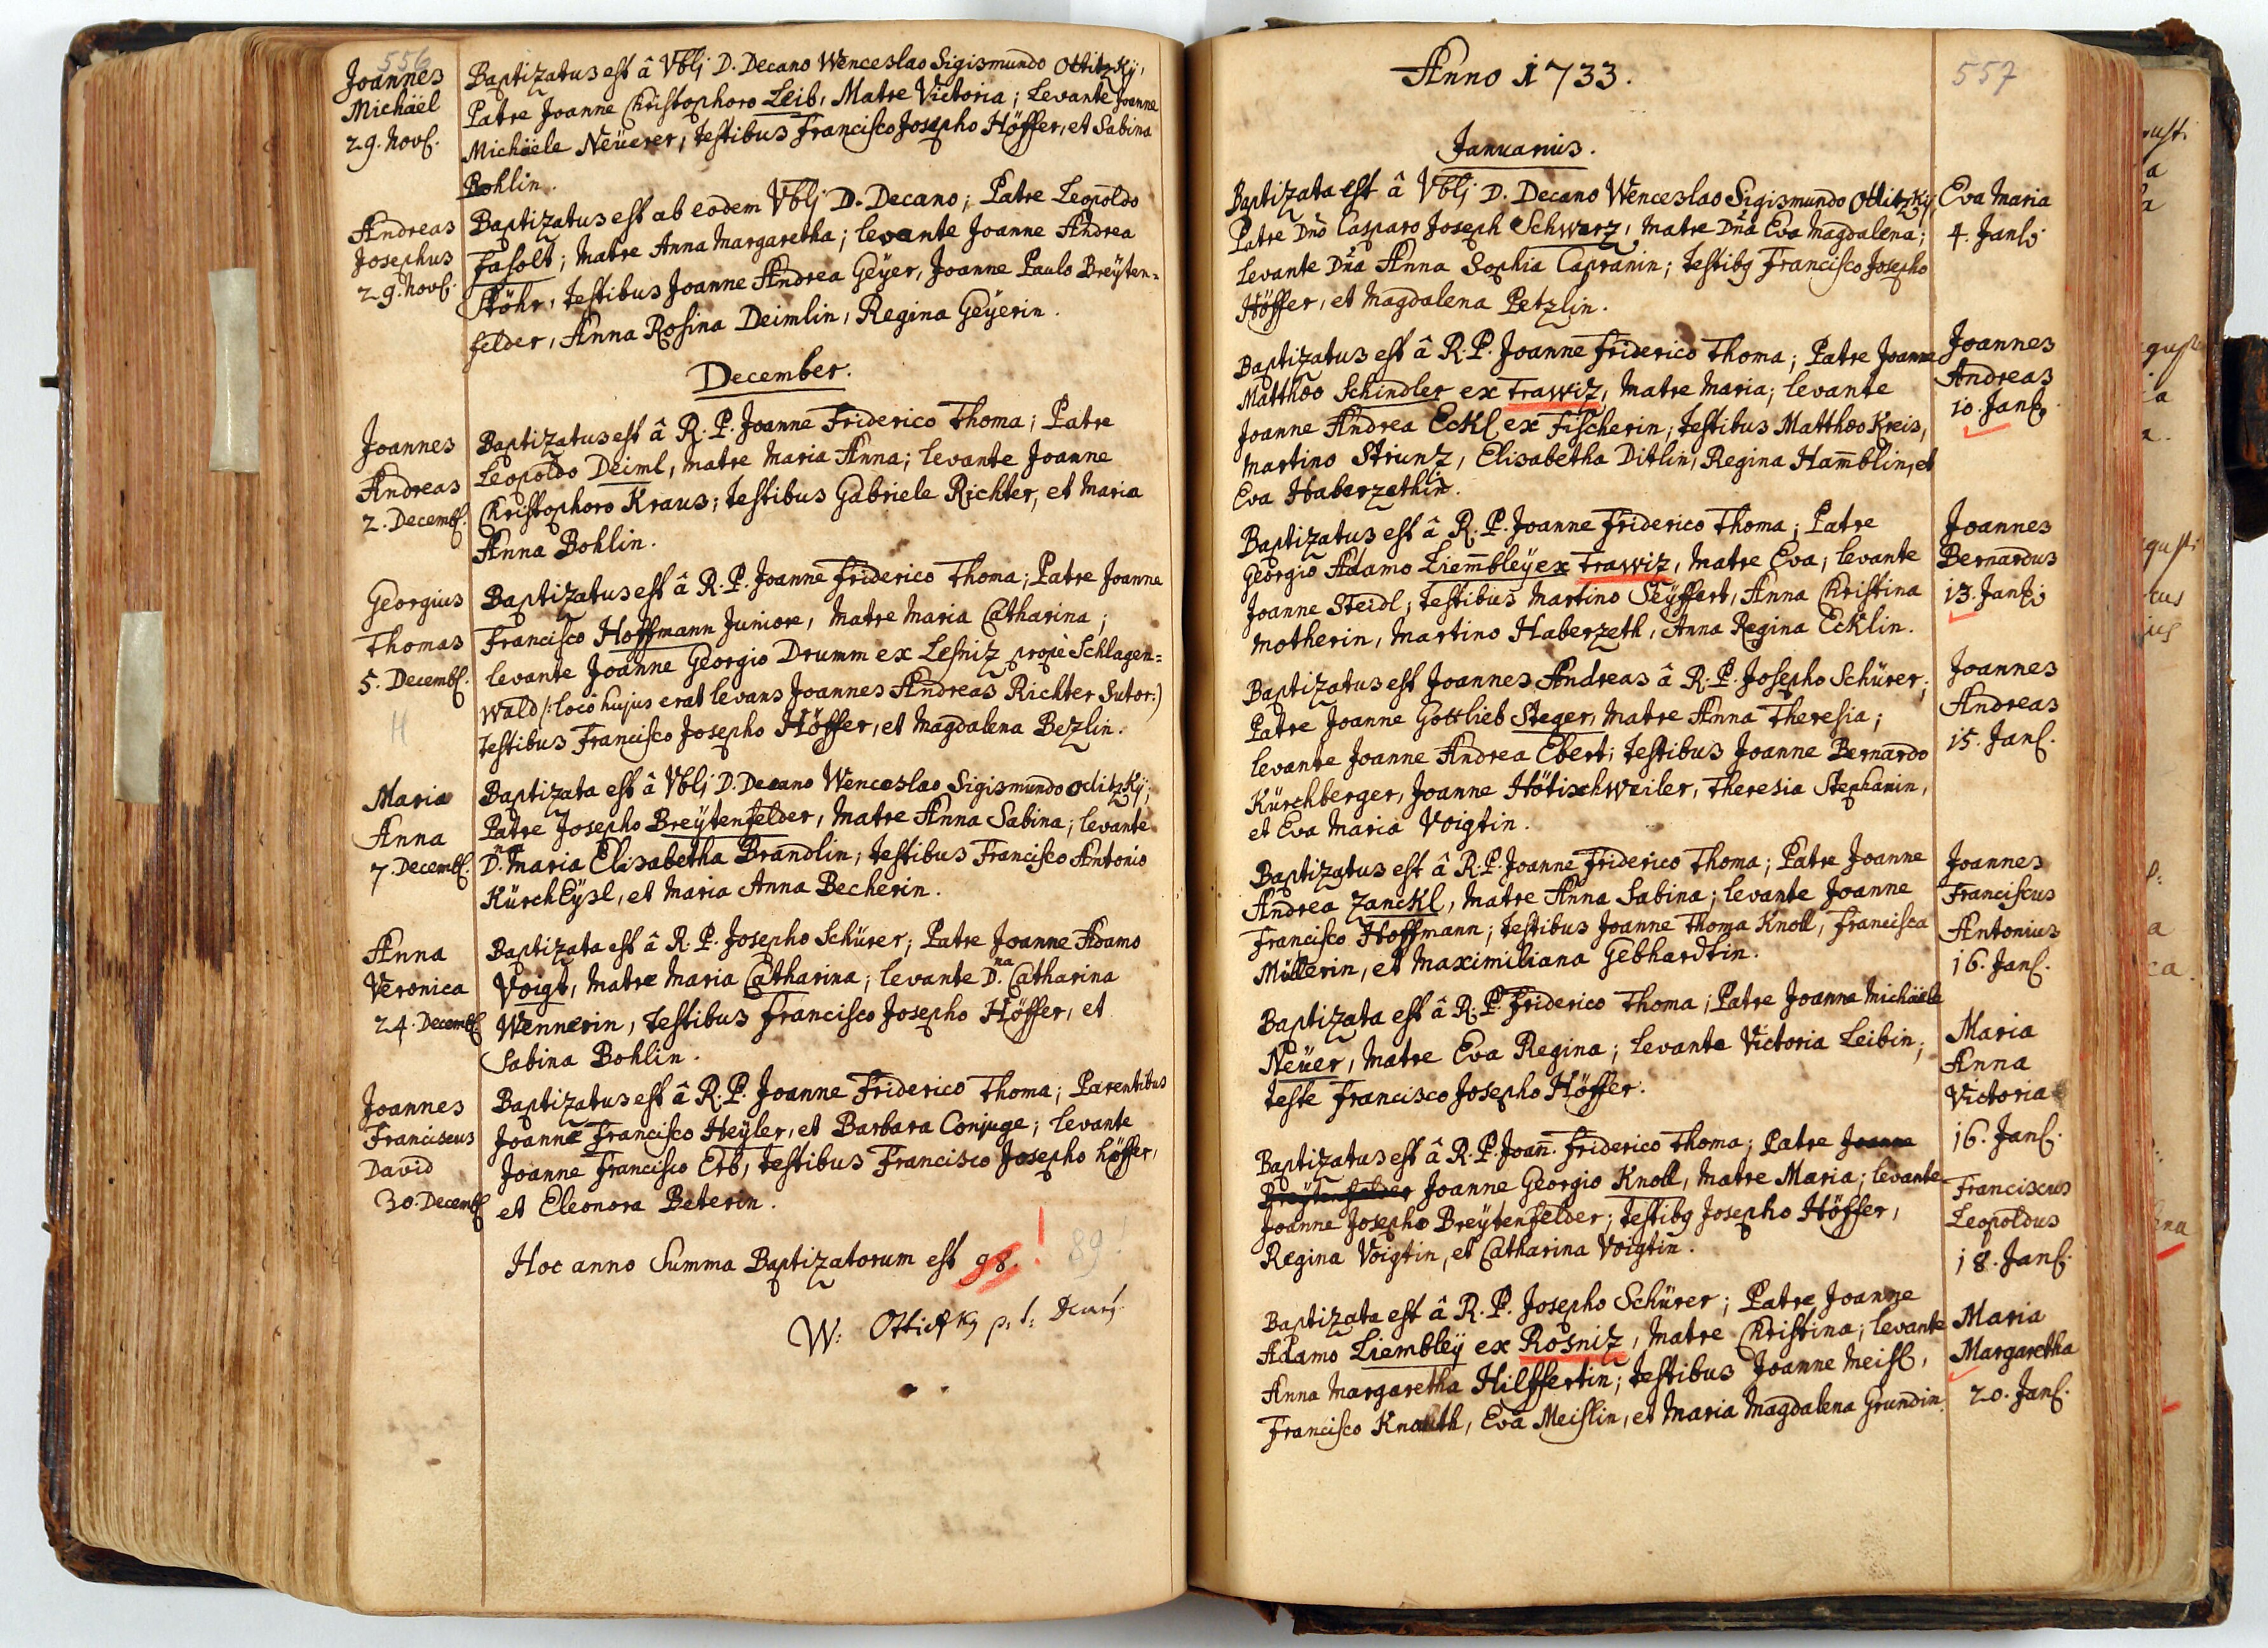 556
Joannes
Michäel
29. Nov.
Baptizatus est â Vblj D. Decano Wenceslao Sigismundo Ottitzkÿ,
Patre Joanne Christophoro Leib, Matre Victoria; Levante Joanne
Michäele Neüerer, testibus Francisco Josepho Höffer, et Sabina
Bohlin.
Andreas
Josephus
29. Nov.
Baptizatus est ab eodem Vblj D. Decano; Patre Leopoldo
Fasolt; Matre Anna Margaretha; levante Joanne Andrea
Stöhr, testibus Joanne Andrea Geÿer, Joanne Paulo Breÿten=
felder, Anna Rosina Deimlin, Regina Geÿerin.
December.
Joannes
Andreas
2. Decemb.
Baptizatus est â R. P. Joanne Friderico Thoma; Patre
Leopoldo Deiml, Matre Maria Anna; levante Joanne
Christophoro Kraus; testibus Gabriele Richter, et Maria
Anna Bohlin.
Georgius
Thomas
5. Decemb.
H
Baptizatus est â R. P. Joanne Friderico Thoma; Patre Joanne
Francisco Hoffmann Juniore, Matre Maria Catharina;
levante Joanne Georgio Drumm ex Lesniz propè Schlagen=
wald (: loco hujus erat levans Joannes Andreas Richter Sutor:)
testibus Francisco Josepho Höffer, et Magdalena Bezlin.
Maria
Anna
7. Decemb.
Baptizata est â Vblj D. Decano Wenceslao Sigismundo Oditzkÿ;
Patre Josepho Breÿtenfelder, Matre Anna Sabina; levante
D.na Maria Elisabetha Brandlin; testibus Francisco Antonio
KürchEÿsl, et Maria Anna Becherin.
Anna
Veronica
24. Decemb.
Baptizata est â R. P. Josepho Schürer; Patre Joanne Adamo
Voigt, Matre Maria Catharina; levante D.na Catharina
Wennerin, testibus Francisco Josepho Höffer, et
Sabina Bohlin.
Joannes
Franciscus
David
30. Decemb.
Baptizatus est â R. P. Joanne Friderico Thoma; Parentibus
Joanne Francisco Heÿler, et Barbara Conjuge; levante
Joanne Francisco Erb, testibus Francisco Josepho höffer,
et Eleonora Beterin.
Hoc anno Summa Baptizatorum est 98. ! 89!
W: Ottitzky p. t:
Anno 1733.
557
Januarius.
Baptizata est â Vblj D. Decano Wenceslao Sigismundo Ottitzkÿ;
Patre Dno Casparo Joseph Schwarz, Matre Dna Eva Magdalena;
Levante Dna Anna Sophia Capranin; testibg Francisco Josepho
Höffer, et Magdalena Petzlin.
Eva Maria
4. Jan.
Baptizatus est â R. P. Joanne Friderico Thoma; Patre Joanne
Matthæo Schindler ex Trawiz, Matre Maria; levante
Joanne Andrea Eckl ex Fischerin; testibus Matthæo Kreis,
Martino Strunz, Elisabetha Ditlin, Regina Ham̄blin, et
Eva Haberzethin.
Joannes
Andreas
10. Jan.
Baptizatus est â R. P. Joanne Friderico Thoma; Patre
Georgio Adamo Liem̄bleÿ ex Trawiz, Matre Eva; levante
Joanne Steidl; testibus Martino Seÿffert, Anna Christina
Motherin, Martino Haberzeth, Anna Regina Ecklin.
Joannes
Bernardus
13. Jan.
Baptizatus est Joannes Andreas â R. P. Josepho Schürer;
Patre Joanne Gottlieb Steger, Matre Anna Theresia;
levante Joanne Andrea Ebert; testibus Joanne Bernardo
Kürchberger, Joanne Hötischweiler, Theresia Stephanin,
et Eva Maria Voigtin.
Joannes
Andreas
15. Jan.
Baptizatus est â R. P. Joanne Friderico Thoma; Patre Joanne
Andrea Zanckl, Matre Anna Sabina; levante Joanne
Francisco Hoffmann; testibus Joanne Thoma Knoll, Francisca
Müllerin, et Maximiliana Gebhardtin.
Joannes
Franciscus
Antonius
16. Jan.
Baptizata est â R. P. Friderico Thoma; Patre Joanne Michäele
Neüer, Matre Eva Regina; levante Victoria Leibin;
teste Francisco Josepho Höffer.
Maria
Anna
Victoria
16. Jan.
Baptizatus est â R. P. Joan̄. Friderico Thoma; Patre Joanne
Breÿtenfelder Joanne Georgio Knoll, Matre Maria; levante
Joanne Josepho Breÿtenfelder; testibg Josepho Höffer,
Regina Voigtin, et Catharina Voigtin.
Franciscus
Leopoldus
18. Jan.
Baptizata est â R. P. Josepho Schürer; Patre Joanne
Adamo Liembleÿ ex Rosniz, Matre Christina; levante
Anna Margaretha Hilffertin; testibus Joanne Meisl,
Francisco Knauth, Eva Meislin, et Maria Magdalena Grundin.
Maria
Margaretha
20. Jan.